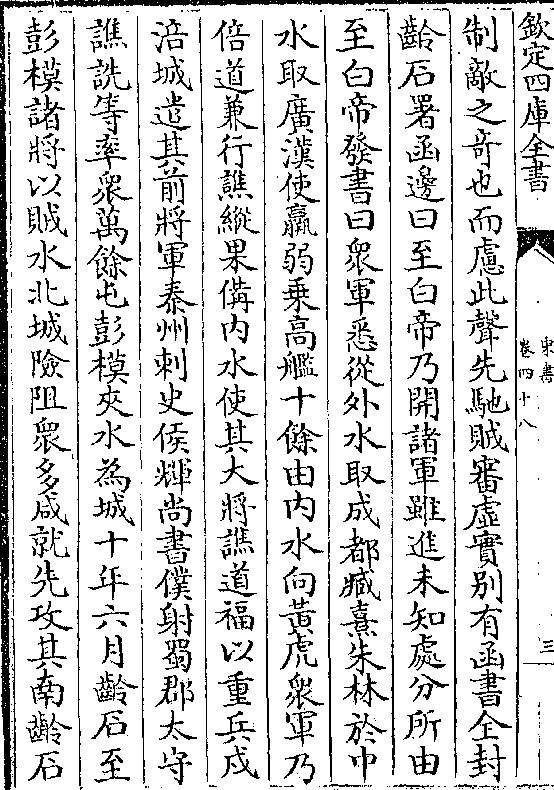 欽定四庫全書
宋書
卷四十八
三
制敵之奇也而慮此聲先馳賊審虛實别有函書全封
齡石署函邊曰至白帝乃開諸軍雖進未知處分所由
至白帝發書曰衆軍悉從外水取成都臧熹朱林於中
水取廣漢使羸弱乗高艦十餘由内水向黄虎衆軍乃
倍道兼行譙縱果備内水使其大將譙道福以重兵戍
涪城遣其前將軍秦州刺史侯輝尚書僕射蜀郡太守
譙詵等率衆萬餘屯彭模夾水為城十年六月齡石至
彭模諸將以賊水北城險阻衆多咸就先攻其南齡石